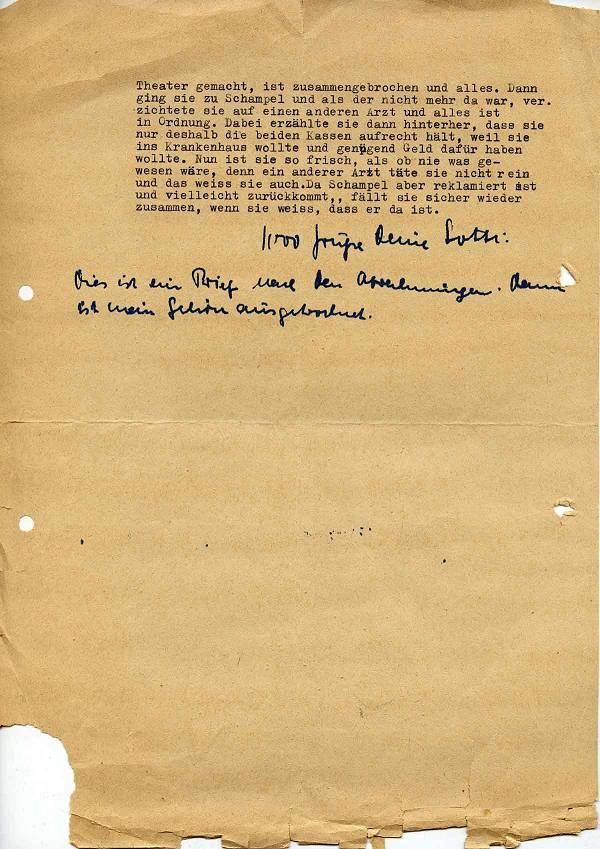 Theater gemacht, ist zusammengebrochen und alles. Dann
ging sie zu Schampel und als der nicht mehr da war, ver.
zichtete sie auf einen anderen Arzt und alles ist
in Ordnung. Dabei erzählte sie dann hinterher, dass sie
nur deshalb die beiden Kassen aufrecht hält, weil sie
ins Krankenhaus wollte und genügend Geld dafür haben
wollte. Nun ist sie so frisch, als ob nie was ge-
wesen wäre, denn ein anderer Arzt täte sie nicht rein
und das weiss sie auch.Da Schampel aber reklamiert ist
und vielleicht zurückkommt,, fällt sie sicher wieder
zusammen, wenn sie weiss, dass er da ist.
1000 Grüße Deine Lotti.
Dies ist ein Brief nach den Abrechnungen. Dann
ist mein Gehirn ausgetrocknet.